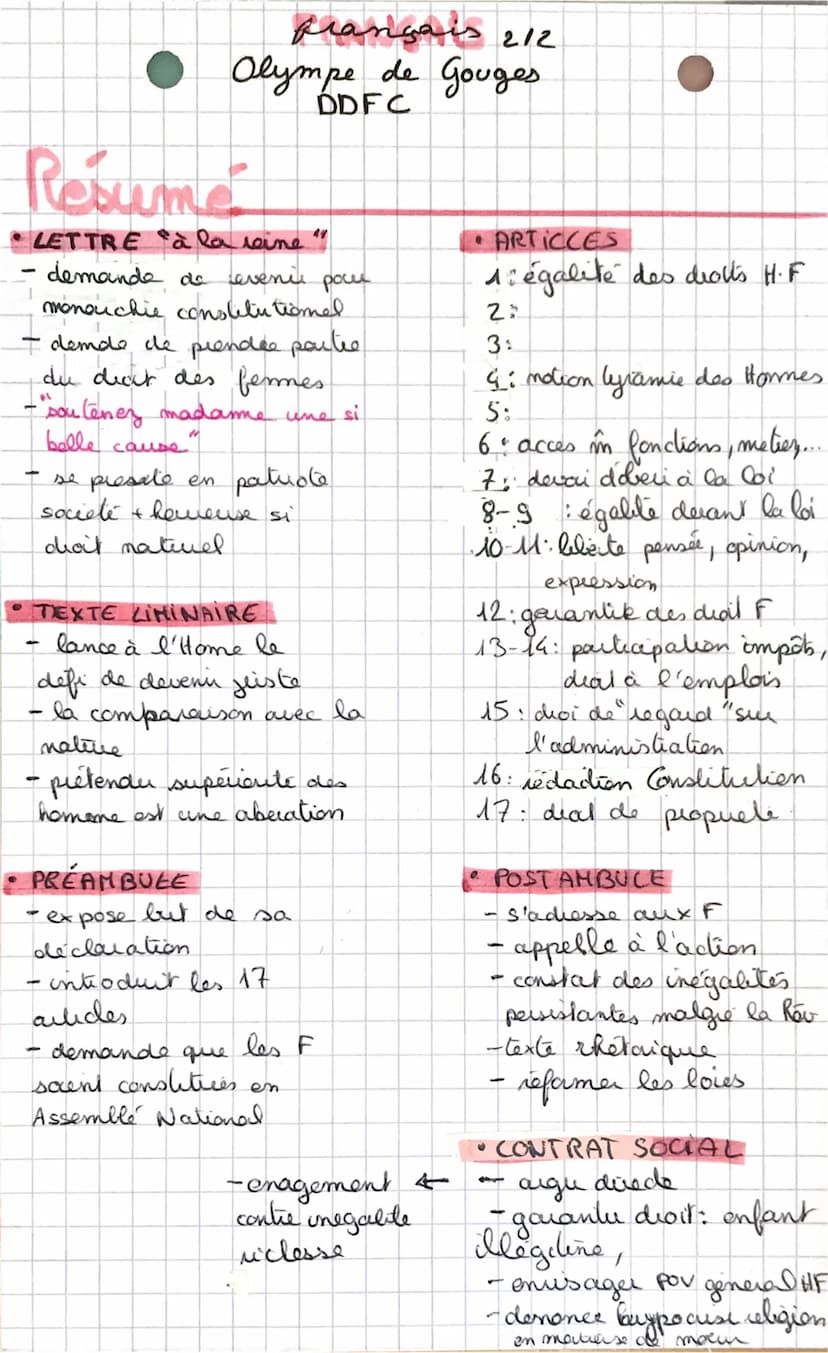 Français 2/2
Olympe de Gouges
DDFC
Résumé
• LETTRE "à la reine"
- demande de revenir pour
monarchie constitutionnel
- demde de prendre partie
du droit des femmes
- "soutenez madame une si
belle cause"
- se presente en patriote
societé + heureuse si
droit naturel
• TEXTE LIMINAIRE
- lance à l'Home le
défi de devenir juste
- la comparaison avec la
nature
- prétendu supériorité des
homme est une aberation
• PRÉAMBULE
- expose but de sa
déclaration
- introduit les 17
articles
- demande que les F
soient constitués en
Assemblé National
• ARTICLES
1: égalité des droits H-F
2:
3:
4: notion tyrannie des Hommes
5:
6: acces fonctions, metiez,...
7: devoi d'obeir à la loi
8-9 : égalité devant la loi
10-11: liberté pensée, opinion,
expression
12: garantit des droit F
13-14: participation impôts,
droit à l'emplois
15: droi de "regard" sur
l'administration
16: rédaction Constitution
17: droit de propriété
• POSTAMBULE
- s'adresse aux F
- appelle à l'action
- constat des inégalités
persistantes malgré la Rév
- texte rhétorique
- réformer les loies
• CONTRAT SOCIAL
- argu directe
- garantu droit: enfant
illégitime,
- envisager POV général HF
- denonce hypocrisi religion
en de moeur
- enagement ←
contre inegalite
richesse